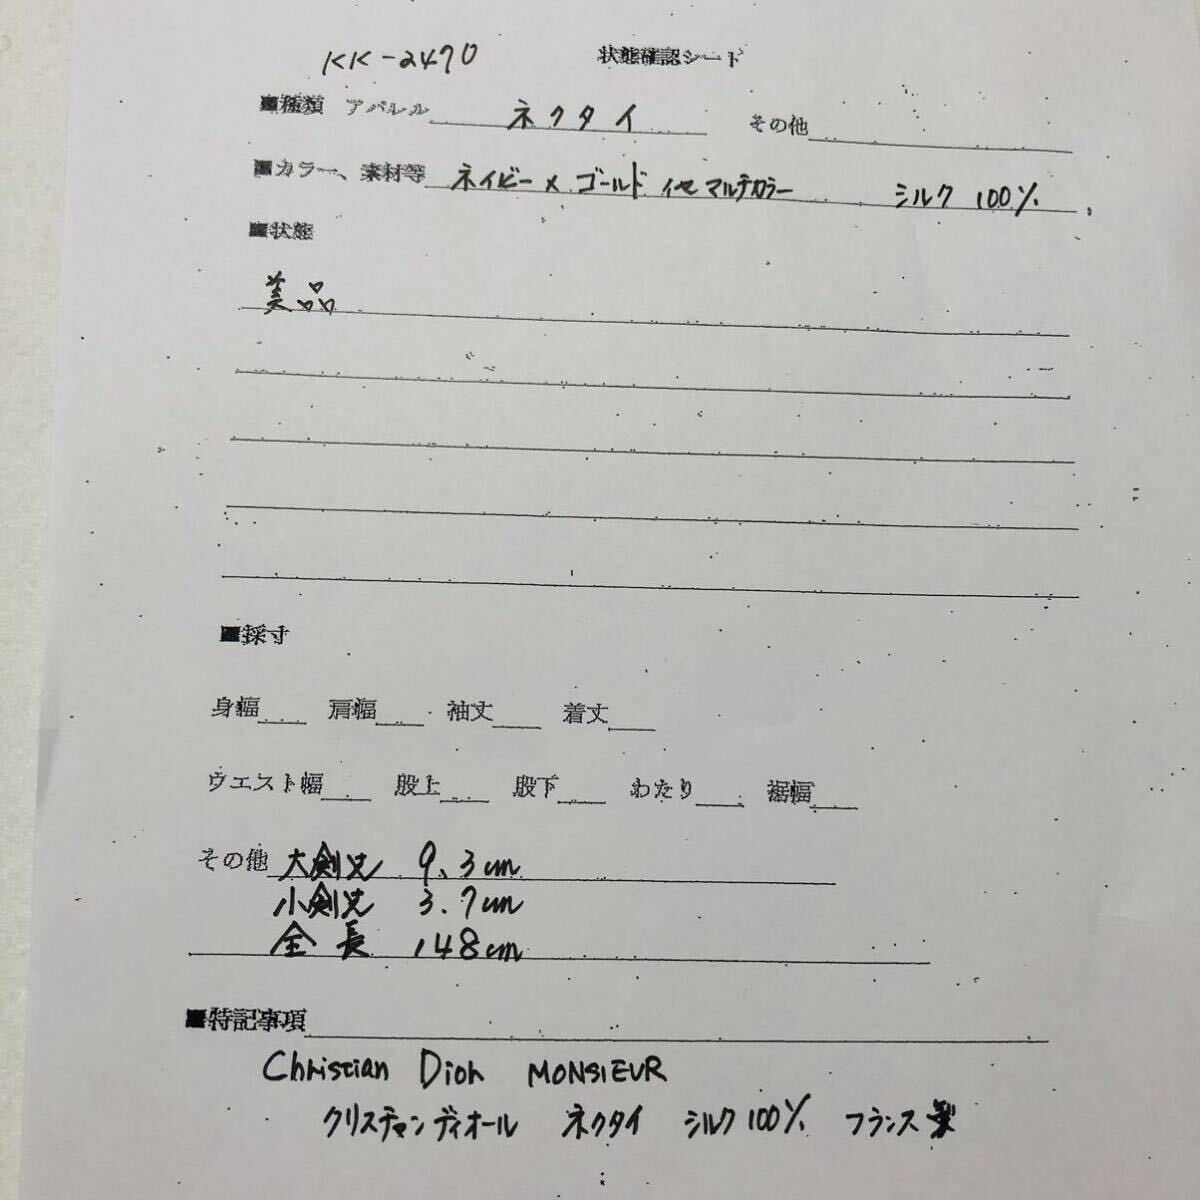 KK-2470 状態確認シート
■種類 アパレル ネクタイ その他
■カラー、素材等 ネイビー × ゴールド 他 マルチカラー シルク 100%
■状態
美品
■採寸
身幅 肩幅 袖丈 着丈
ウエスト幅 股上 股下 わたり 裾幅
その他 大剣丈 9.3cm
小剣丈 3.7cm
全長 148cm
■特記事項
Christian Dior MONSIEUR
クリスチャンディオール ネクタイ シルク100% フランス製